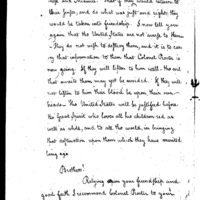 their [...] and do what is just and right; they
would be taken into friendship. I now tell you
again that the United States are not unsafe to them
They do not wish to destroy them, and it is to carry
that information to them that Colonel Proctor is
now going. If they will listen to him well. No out
that awaits them may yet be avoided. If they will
not listen to him their blood be upon their own
heads. The United States will be justified before
the Great Spirit who loves all his children red as
well as white, and to all the world, in bringing
that destruction upon them which they have invited
long ago.
Brothers!
Relying upon your friendship and
good faith I recommend Colonel Proctor to your